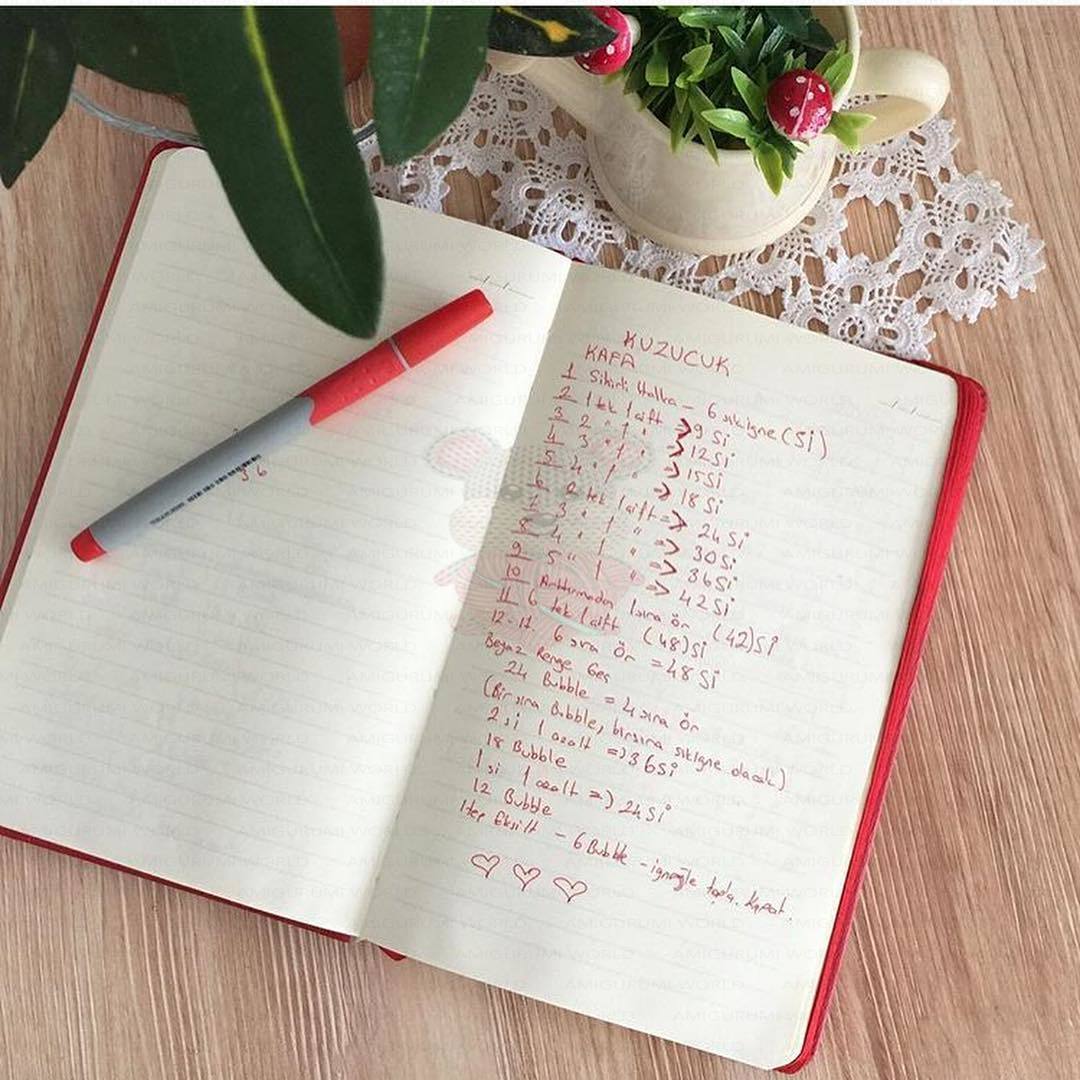 KUZUCUK
KAFA
1 Sihirli Halka – 6 sıkiğne (Sİ)
2 1 tek 1 çift => 9 Sİ
3 2 " 1 " => 12Sİ
4 3 " 1 " => 15Sİ
5 4 " 1 " => 18 Sİ
6 2 tek 1 çift => 24 Sİ
7 3 " 1 " => 30Sİ
8 4 " 1 " => 36Sİ
9 5 " 1 " => 42Sİ
10 Arttırmadan 1sıra ör (42)Sİ
11 6 tek 1 çift (48)Sİ
12-17 6 sıra ör = 48 Sİ
Beyaz Renge Geç
24 Bubble = 4 sıra ör
(Bir sıra Bubble, birsıra sıkiğne olacak)
2 si 1 azalt => 36si
18 Bubble
1 si 1 azalt => 24 si
12 Bubble
Hep Eksilt – 6 Bubble – iğneyle topla. kapat.
36
AMIGURUMI WORLD